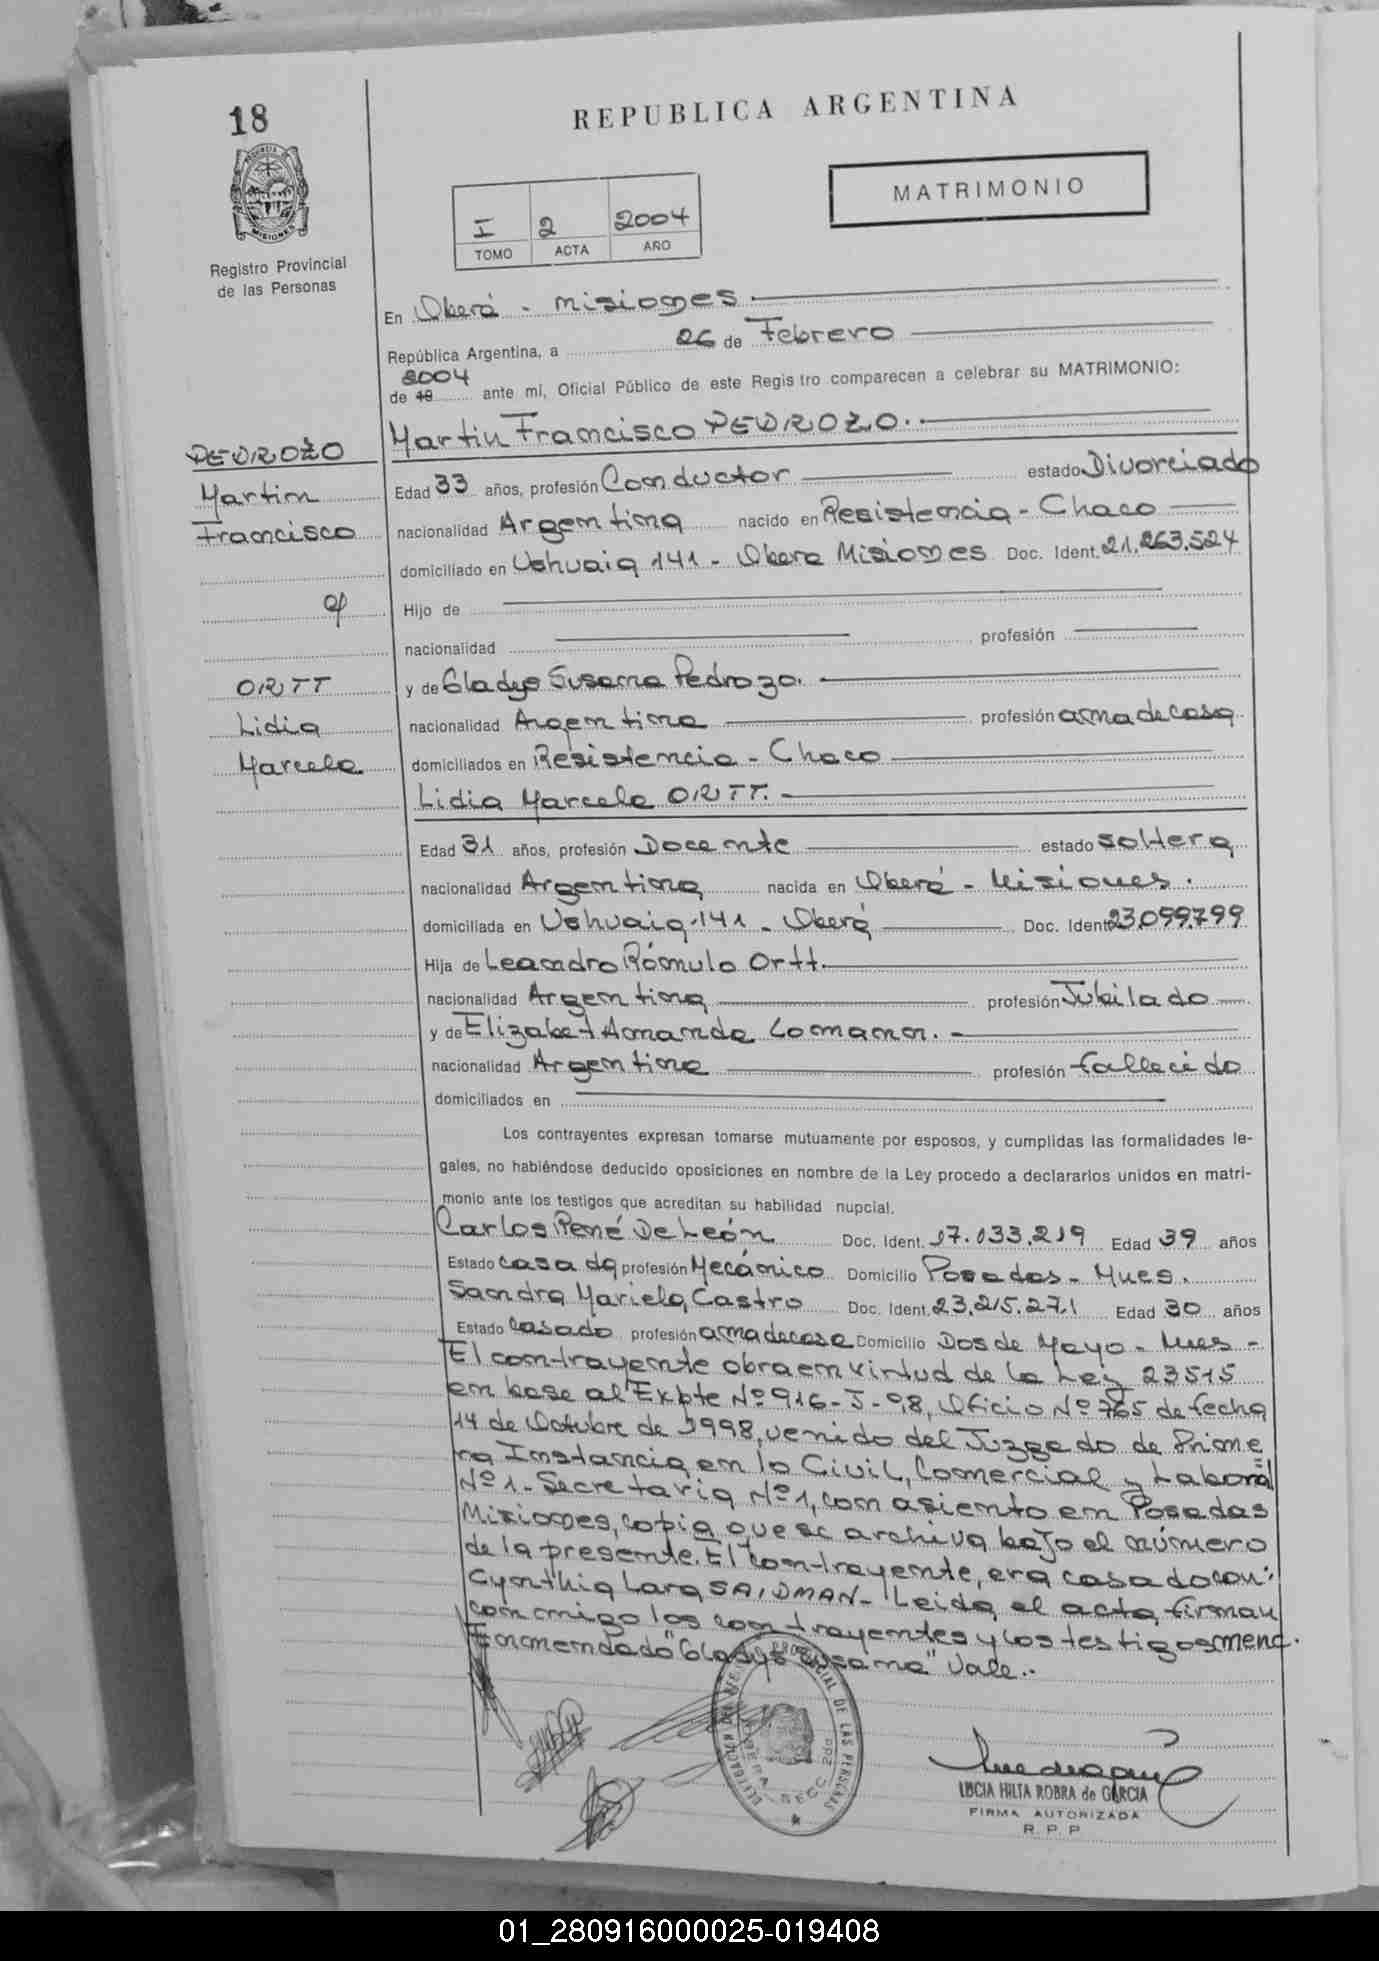 18
REPUBLICA ARGENTINA
MATRIMONIO
I 2 2004
TOMO ACTA AÑO
PROVINCIA
MISIONES
Registro Provincial
de las Personas
En Oberá - Misiones
República Argentina, a 26 de Febrero
2004
de 19 ante mi, Oficial Público de este Registro comparecen a celebrar su MATRIMONIO:
Martin Francisco PEDROZO.
PEDROZO
Martin
Francisco
c/
ORTT
Lidia
Marcela
Edad 33 años, profesión Conductor estado Divorciado
nacionalidad Argentina nacido en Resistencia - Chaco
domiciliado en Ushuaia 141 - Obera Misiones Doc. Ident. 21.263.524
Hijo de
nacionalidad profesión
y de Gladys Susana Pedrozo.
nacionalidad Argentina profesión ama de casa
domiciliados en Resistencia - Chaco
Lidia Marcela ORTT.
Edad 31 años, profesión Docente estado soltera
nacionalidad Argentina nacida en Oberá - Misiones.
domiciliada en Ushuaia 141 - Oberá Doc. Ident 23.099.799
Hija de Leandro Rómulo Ortt.
nacionalidad Argentina profesión Jubilado
y de Elizabet Amanda Lomann.
nacionalidad Argentina profesión fallecido
domiciliados en
Los contrayentes expresan tomarse mutuamente por esposos, y cumplidas las formalidades le-
gales, no habiéndose deducido oposiciones en nombre de la Ley procedo a declararlos unidos en matri-
monio ante los testigos que acreditan su habilidad nupcial.
Carlos René De León Doc. Ident. 17.033.219 Edad 39 años
Estado casado profesión Mecánico Domicilio Posadas - Mnes.
Sandra Mariela Castro Doc. Ident. 23.215.271 Edad 30 años
Estado casado profesión ama de casa Domicilio Dos de Mayo - Mnes -
El contrayente obra en virtud de la Ley 23515
en base al Expte Nº 916 - J - 98, Oficio Nº 765 de fecha
14 de Octubre de 1998, venido del Juzgado de Prime
ra Instancia en lo Civil, Comercial y Laboral
Nº 1 - Secretaria Nº 1, con asiento en Posadas
Misiones, copia que se archiva bajo el número
de la presente. El contrayente, era casado con:
Cynthia Lara SAIDMAN - Leida el acta, firman
conmigo los contrayentes y los testigos menc.
Enmendado "Gladys Susana" Vale.
SECC 2da
LUCIA HILTA ROBRA de GARCIA
FIRMA AUTORIZADA
R. P. P
01_280916000025-019408